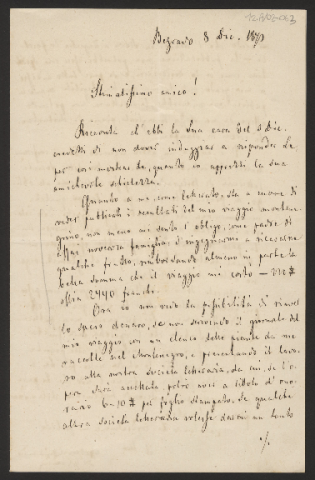 Belgrado 8 Dic. 1873
Stimatissimo amico!
Ricevuta ch'ebbi la Sua cara del 3 Dic.
credetti di non dover indugiare a rispondere
per cui mostrando, quanto io apprezzi la Sua
amichevole schiettezza.
Quanto a me, come letterato, sta a cuore di
veder pubblicati i resultati del mio viaggio montene-
grino, non meno me sento l'obligo, come padre di
assai numerosa famiglia, d'ingegnarmi a ricavarne
qualche frutto, rimborsando almeno in parte la
bella somma che il viaggio mi costò —
assia 2440 franchi.
Ora io non vedo la possibilità di rimet-
lo speso denaro, se non scrivendo il giornale del
mio viaggio con un elenco delle piante da me
raccolte nel Montenegro, e presentando il lavo-
ro alla nostra società letteraria, da cui, se l'o-
pera sarà accettata, potrò avere a titolo d'ono-
rario 6-10# per foglio stampato. Se qualche
altra società letteraria volesse darmi un tanto
./.